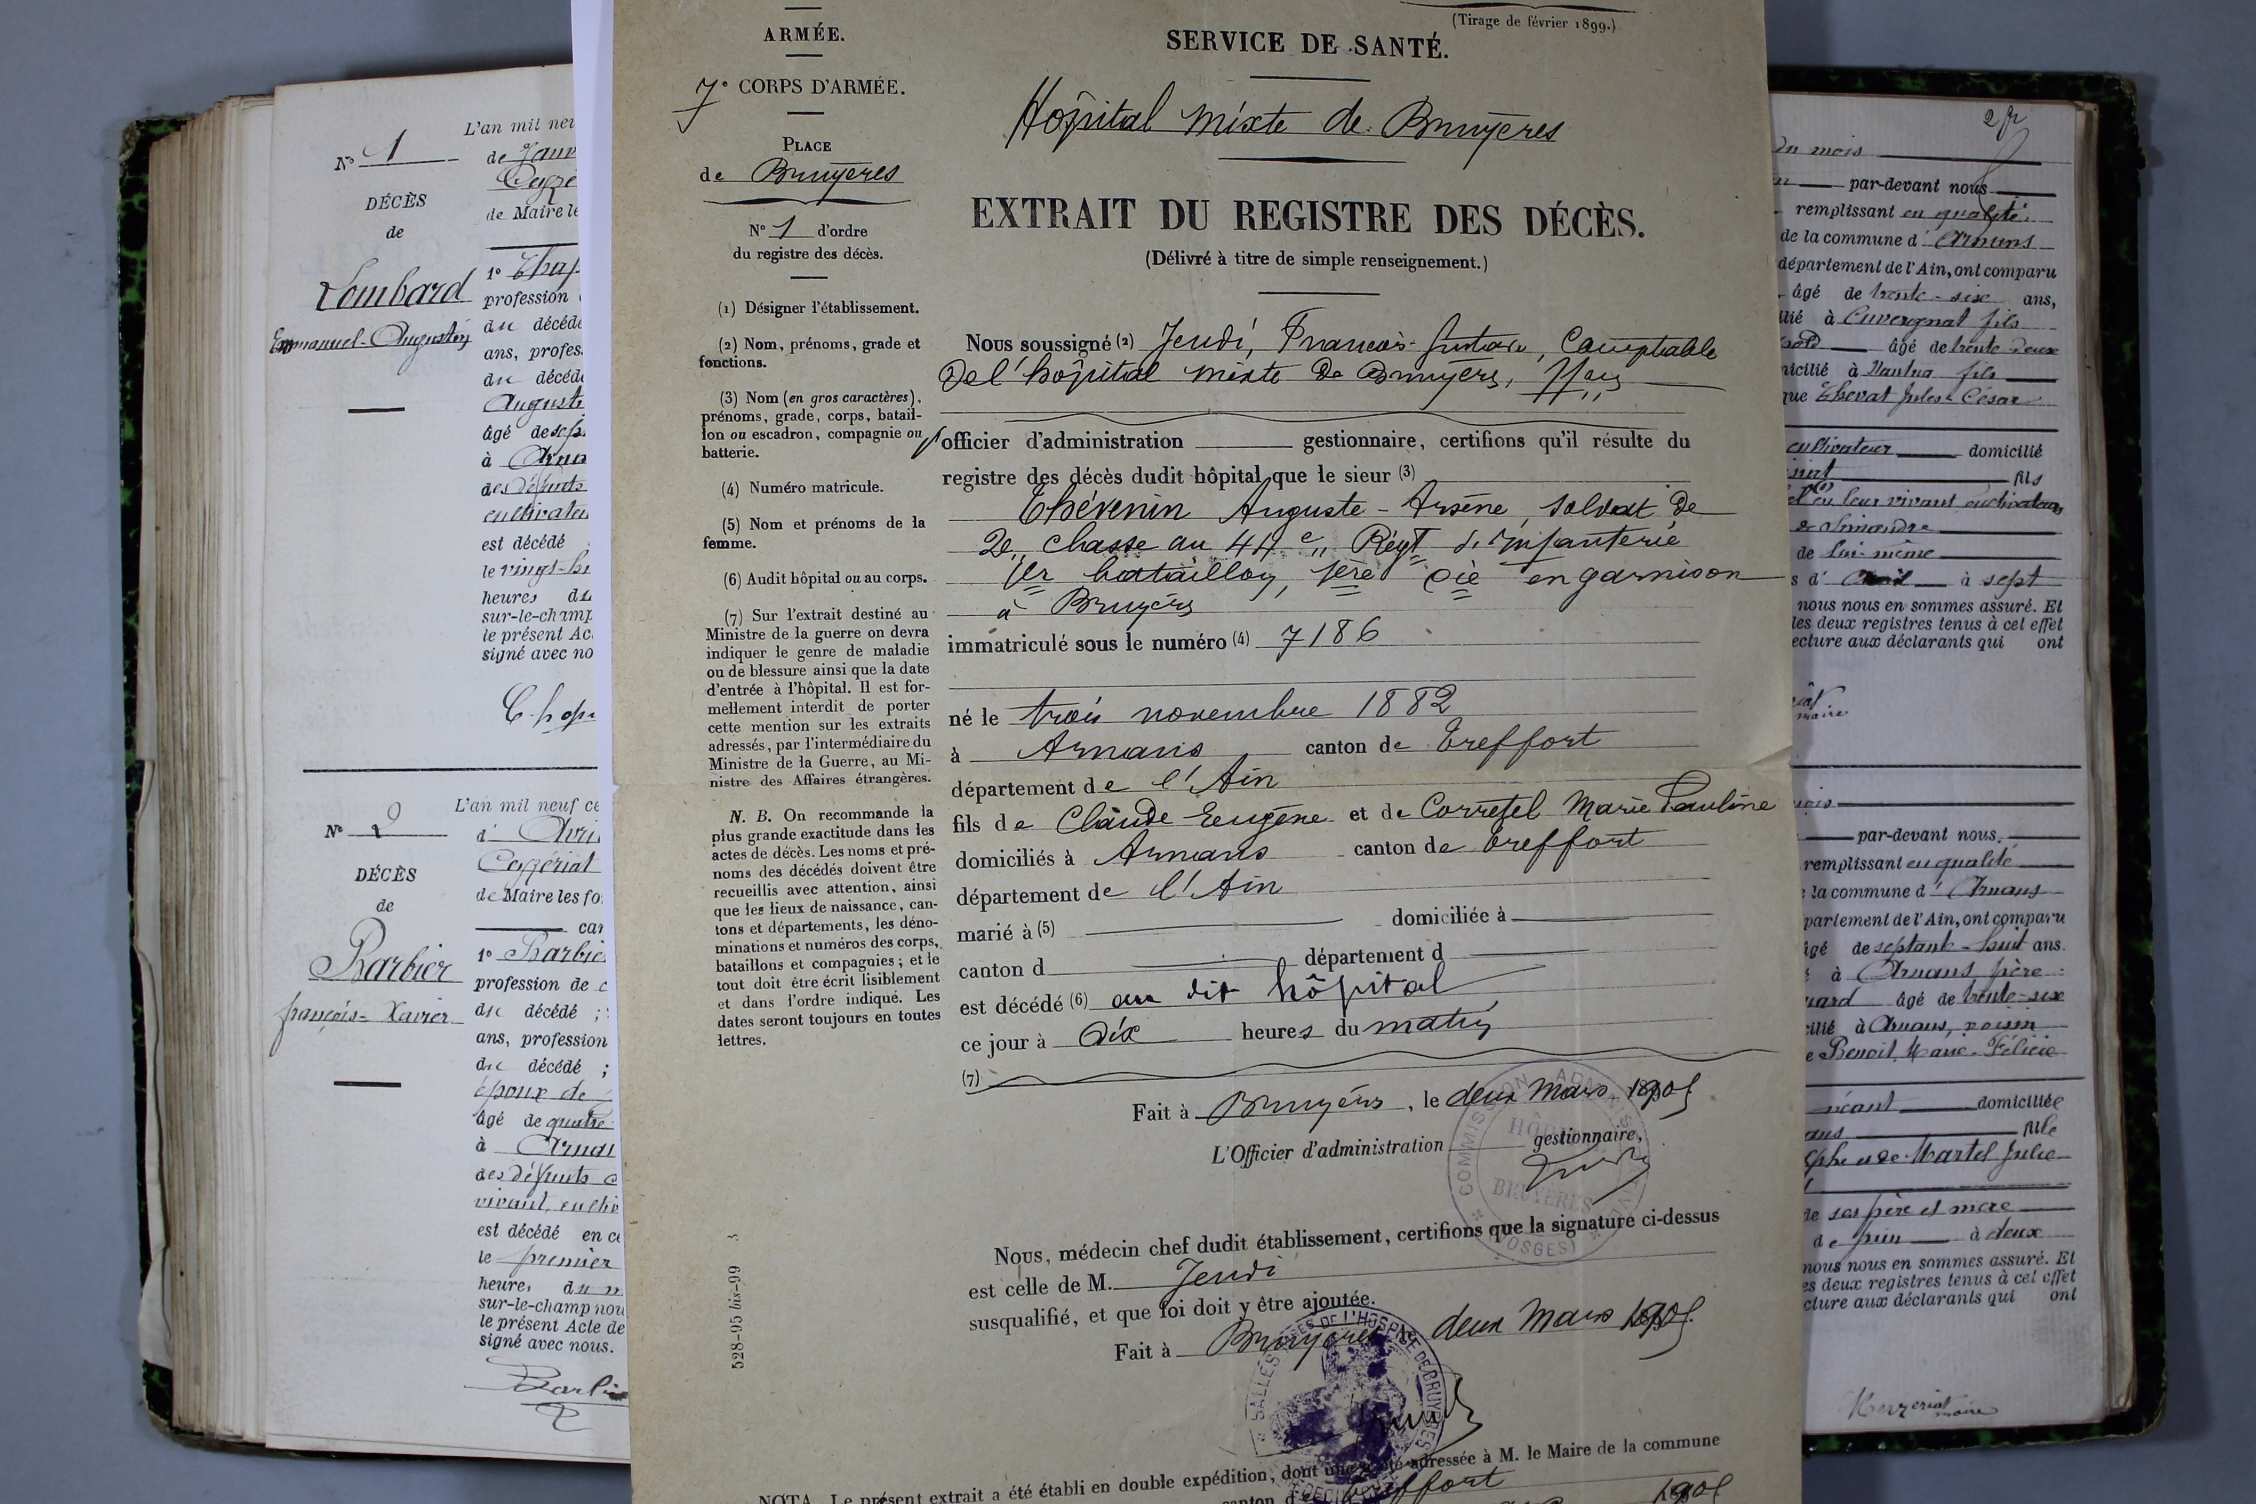 N° 1
DÉCÈS
de
Lombard
Emmanuel-Augustin
L'an mil neu
de Janv
de Maire le
1°
profession
du décédé
ans, profes
du décédé
Auguste
âgé de
à
des défunts
cultivate
est décédé
le vingt-
heures du
sur-le-champ
le présent Ac
signé avec no
N° 2
DÉCÈS
de
Barbier
françois-Xavier
L'an mil neuf ce
d' Avri
de Maire les fo
can
1° Barbier
profession de c
du décédé ;
ans, profession
du décédé ;
époux de
âgé de quatre
à Arnan
des défunts
vivant, culti
est décédé en c
le premier
heure, du m
sur-le-champ nou
le présent Acte de
signé avec nous.
Barbie
ARMÉE.
7e CORPS D'ARMÉE.
PLACE
de Bruyères
N° 1 d'ordre
du registre des décès.
(1) Désigner l'établissement.
(2) Nom, prénoms, grade et
fonctions.
(3) Nom (en gros caractères),
prénoms, grade, corps, batail-
lon ou escadron, compagnie ou
batterie.
(4) Numéro matricule.
(5) Nom et prénoms de la
femme.
(6) Audit hôpital ou au corps.
(7) Sur l'extrait destiné au
Ministre de la guerre on devra
indiquer le genre de maladie
ou de blessure ainsi que la date
d'entrée à l'hôpital. Il est for-
mellement interdit de porter
cette mention sur les extraits
adressés, par l'intermédiaire du
Ministre de la Guerre, au Mi-
nistre des Affaires étrangères.
N. B. On recommande la
plus grande exactitude dans les
actes de décès. Les noms et pré-
noms des décédés doivent être
recueillis avec attention, ainsi
que les lieux de naissance, can-
tons et départements, les déno-
minations et numéros des corps,
bataillons et compagnies ; et le
tout doit être écrit lisiblement
et dans l'ordre indiqué. Les
dates seront toujours en toutes
lettres.
528-95 bis-99
(Tirage de février 1899.)
SERVICE DE SANTÉ.
Hôpital mixte de Bruyères
EXTRAIT DU REGISTRE DES DÉCÈS.
(Délivré à titre de simple renseignement.)
Nous soussigné (2) Jeudi, François-Gustave, Comptable
De l'hôpital mixte de Bruyères,
officier d'administration gestionnaire, certifions qu'il résulte du
registre des décès dudit hôpital que le sieur (3)
Thévenin Auguste-Arsène, soldat de
2e classe au 44e Régt d'Infanterie
1er bataillon, 1ère Cie en garnison
à Bruyères
immatriculé sous le numéro (4) 7186
né le trois novembre 1882
à Arnans canton de Treffort
département de l'Ain
fils de Claude Eugène et de Corretel Marie Pauline
domiciliés à Arnans canton de Treffort
département de l'Ain
marié à (5) domiciliée à
canton d département d
est décédé (6) au dit hôpital
ce jour à dix heures du matin
(7)
Fait à Bruyères, le deux Mars 1905
L'Officier d'administration gestionnaire,
Nous, médecin chef dudit établissement, certifions que la signature ci-dessus
est celle de M. Jeudi
susqualifié, et que foi doit y être ajoutée.
Fait à Bruyères deux Mars 1905.
NOTA. Le présent extrait a été établi en double expédition, dont une a été adressée à M. le Maire de la commune
canton de Treffort 1905
COMMISSION ADMINIS
HÔPITAL
BRUYÈRES
(VOSGES)
SALLES
DE L'HOSPICE DE BRUYÈRES
2 fr
du mois
par-devant nous
remplissant en qualité
de la commune d' Arnans
département de l'Ain, ont comparu
âgé de trente-six ans,
ilié à Cuvergnat fils
âgé de trente-deux
micilié à Nantua fils
que Thevat Jules-César
cultivateur domicilié
fils
en leur vivant cultivateurs
de Simandre
de lui-même
à sept
nous nous en sommes assuré. Et
les deux registres tenus à cet effet
ecture aux déclarants qui ont
maire
mois
par-devant nous,
remplissant en qualité
la commune d' Arnans
partement de l'Ain, ont comparu
âgé de septante-huit ans.
à Arnans, père
uard âgé de trente-six
cilié à Arnans, voisin
e Benoit, Marie-Félicie
domiciliée
fille
eph et de Martel Julie
de ses père et mère
de juin à deux
nous nous en sommes assuré. Et
es deux registres tenus à cet effet
cture aux déclarants qui ont
maire